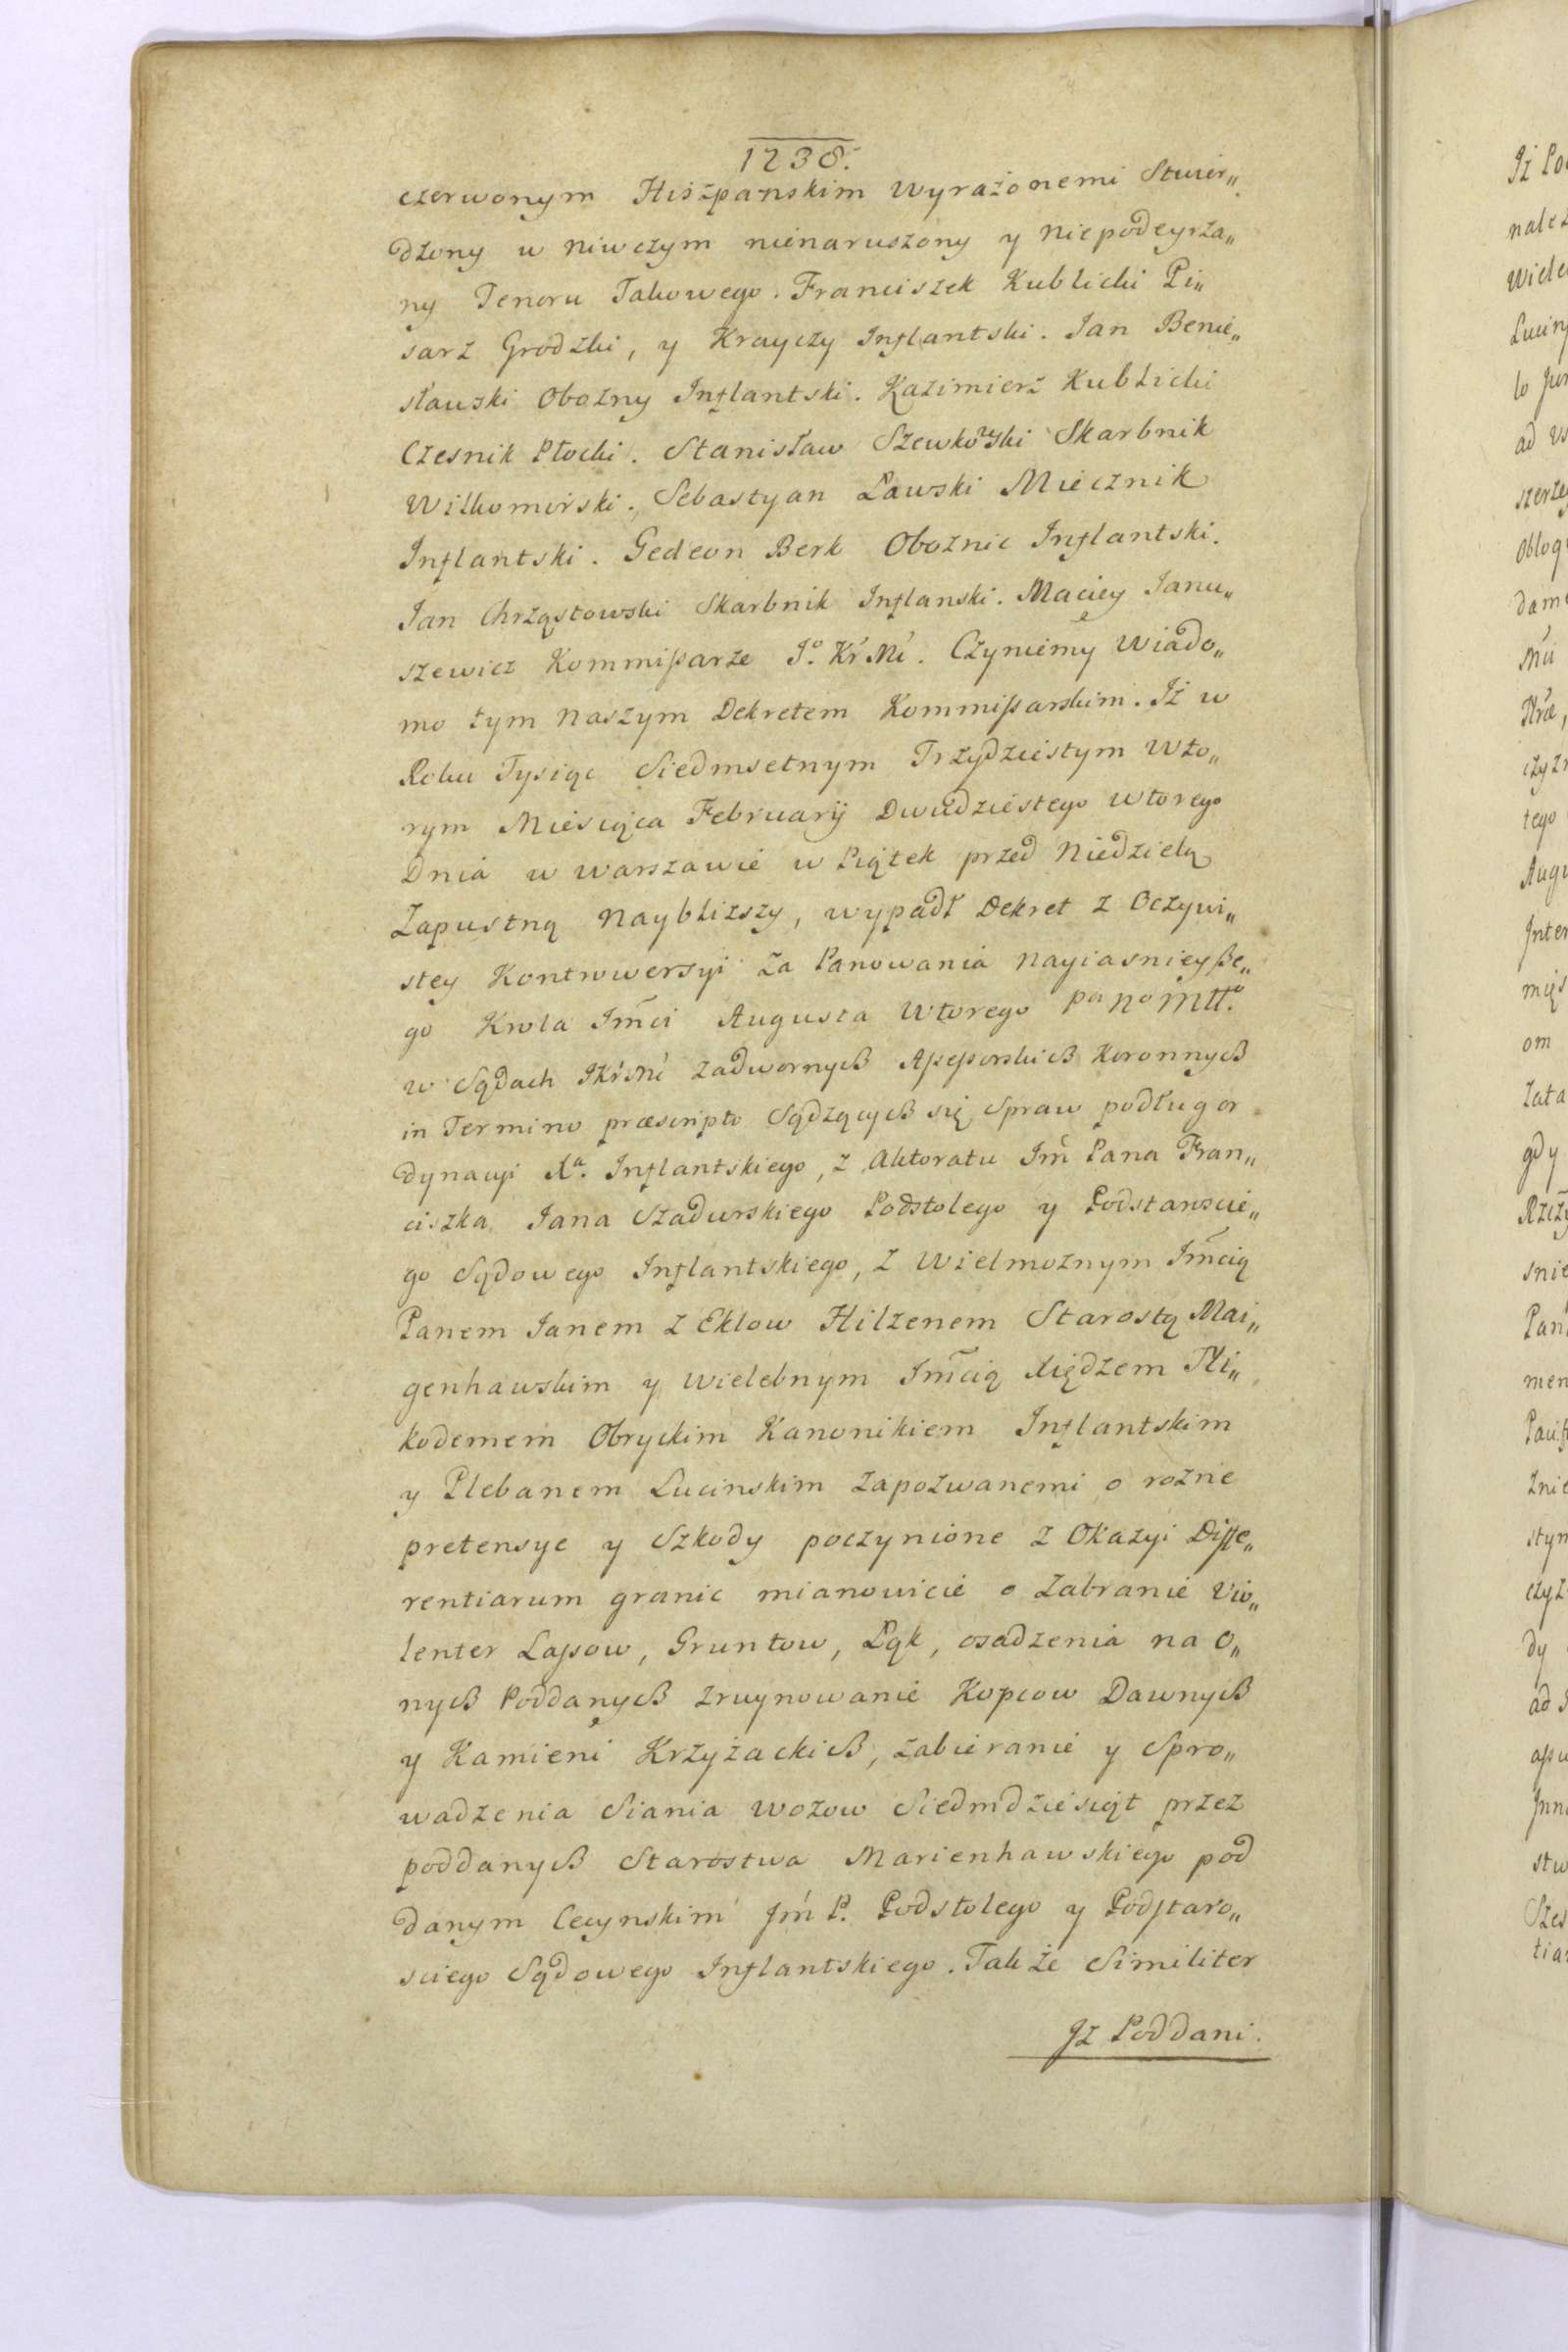 1238.
czerwonym Hiszpanskim wyrażonemi Stwier„
dzony w niwczym nienaruszony y niepodeyrza„
ny Tenoru Takowego. Franciszek Kublicki Pi„
sarz Grodzki, y Krayczy Inflantski. Jan Benie„
sławski Obozny Inflantski. Kazimierz Kublicki
Czesnik Płocki. Stanisław Szewkowski Skarbnik
Wiłkomirski. Sebastyan Ławski Miecznik
Inflantski. Gedeon Berk Oboznic Inflantski.
Jan Chrząstowski Skarbnik Inflanski. Maciey Janu„
szewicz Kommißarze Jº. Kr Mć. Czyniemy Wiado„
mo tym naszym Dekretem Kommißarskim. Iż w
Roku Tysiąc Siedmsetnym Trzydziestym wto„
rym Miesiąca Februarij Dwudziestego wtorego
Dnia w Warszawie w Piątek przed Niedzielą
Zapustną naybliższy, wypadł Dekret z Oczywi„
stey Kontrowersyi za Panowania nayiasnieyße„
go Krola Jm̃ci Augusta wtorego
w Sądach JKrMć zadwornych Aßeßorskich Koronnych
in Termino præscripto Sądzących się Spraw podług or
dynacyi Xª. Inflantskiego, z Aktoratu Jm̃ Pana Fran„
ciszka Jana Szadurskiego Podstolego y Podstaroscie„
go Sądowego Inflantskiego, z Wielmoznym Jm̃cią
Panem Janem z Eklow Hilzenem Starostą Mai„
genhawskim y wielebnym Jm̃cią Xiędzem Ni„
kodemem Obryckim Kanonikiem Inflantskim
y Plebanem Lucinskim zapozwanemi o rozne
pretensye y Szkody poczynione z Okazyi Diffe„
rentiarum granic mianowicie o zabranie vio„
lenter Laßow, Gruntow, Łąk, osadzenia na o„
nych Poddanych zruynowanie Kopcow Dawnych
y Kamieni Krzyżackich, zabieranie y Spro„
wadzenia Siania wozow Siedmdziesiąt przez
poddanych Starostwa Marienhawskiego pod
danym Cecynskim Jm̃ P. Podstolego y Podstaro„
sciego Sądowego Inflantskiego. Takze Similiter
Jz Poddani.